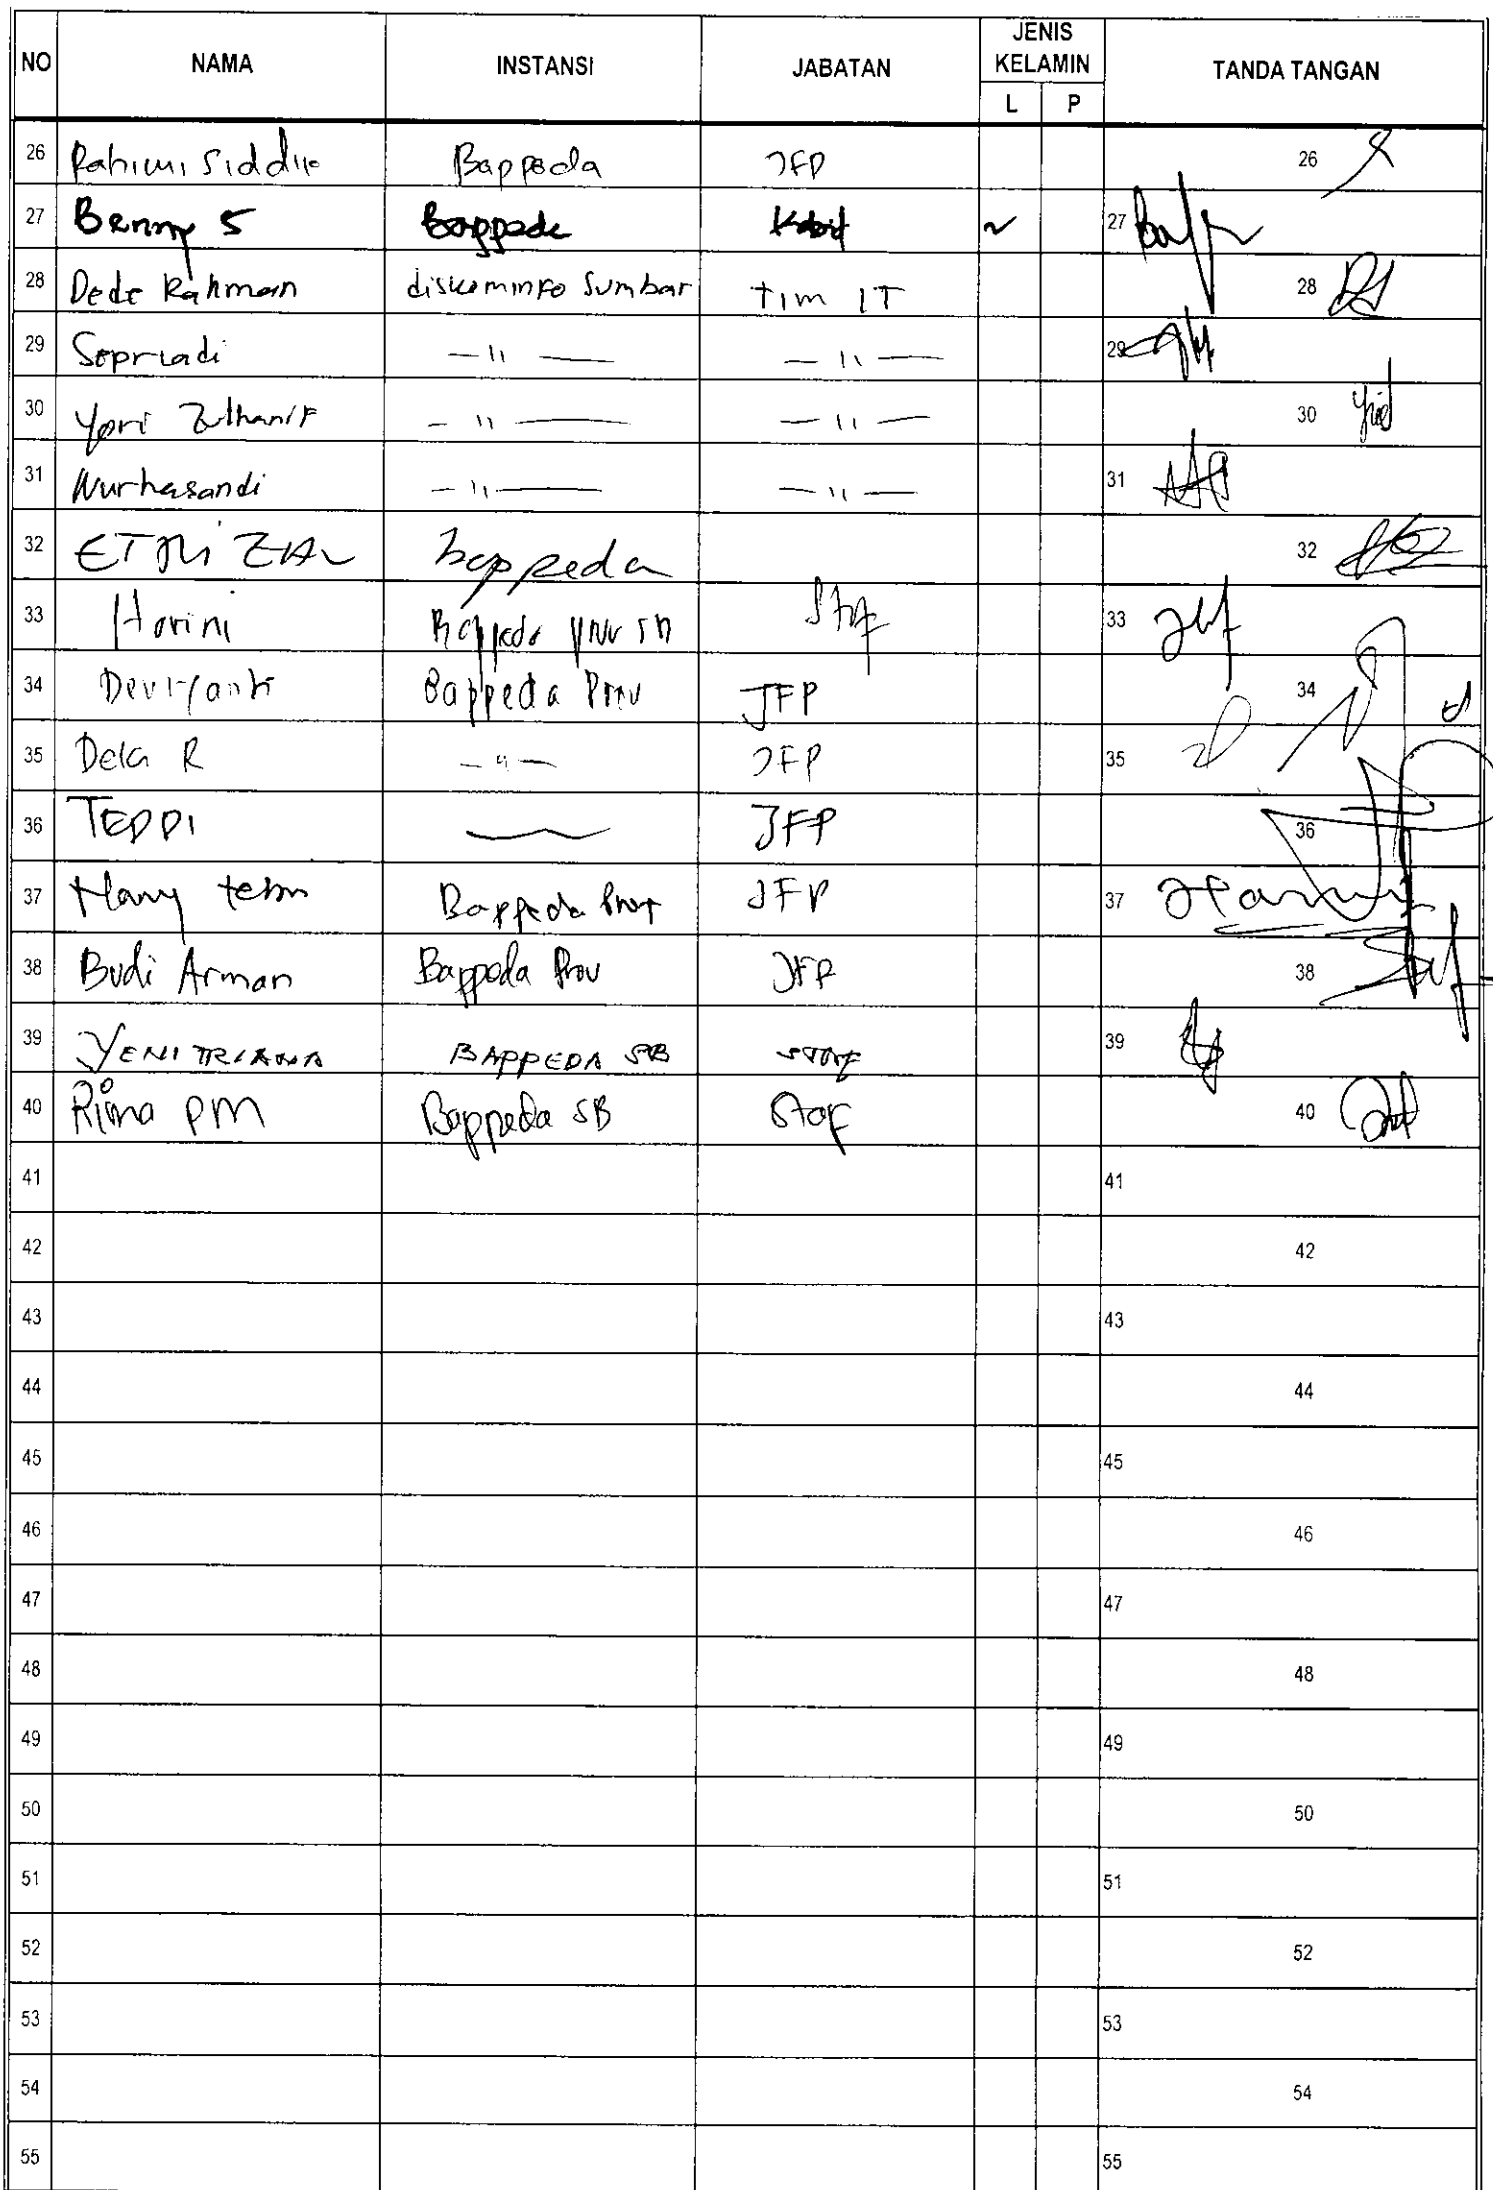 NO NAMA INSTANSI JABATAN JENIS KELAMIN TANDA TANGAN
L P
26 Rahimi Siddik Bappeda JFP 26
27 Benny S Bappeda Kabid 27
28 Dede Rahman diskominfo Sumbar tim IT 28
29 Sopriadi — 〃 — — 〃 — 29
30 Yori Zulhanif — 〃 — — 〃 — 30
31 Nurhasandi — 〃 — — 〃 — 31
32 ETRIZAL bappeda 32
33 Harini Bappeda Staf 33
34 Deviyanti Bappeda Prov JFP 34
35 Dela R — 〃 — JFP 35
36 TEDDI JFP 36
37 Hany Bappeda Prov JFP 37
38 Budi Arman Bappeda Prov JFP 38
39 YENI TRIANA BAPPEDA SB STAF 39
40 Rima PM Bappeda SB Staf 40
41 41
42 42
43 43
44 44
45 45
46 46
47 47
48 48
49 49
50 50
51 51
52 52
53 53
54 54
55 55